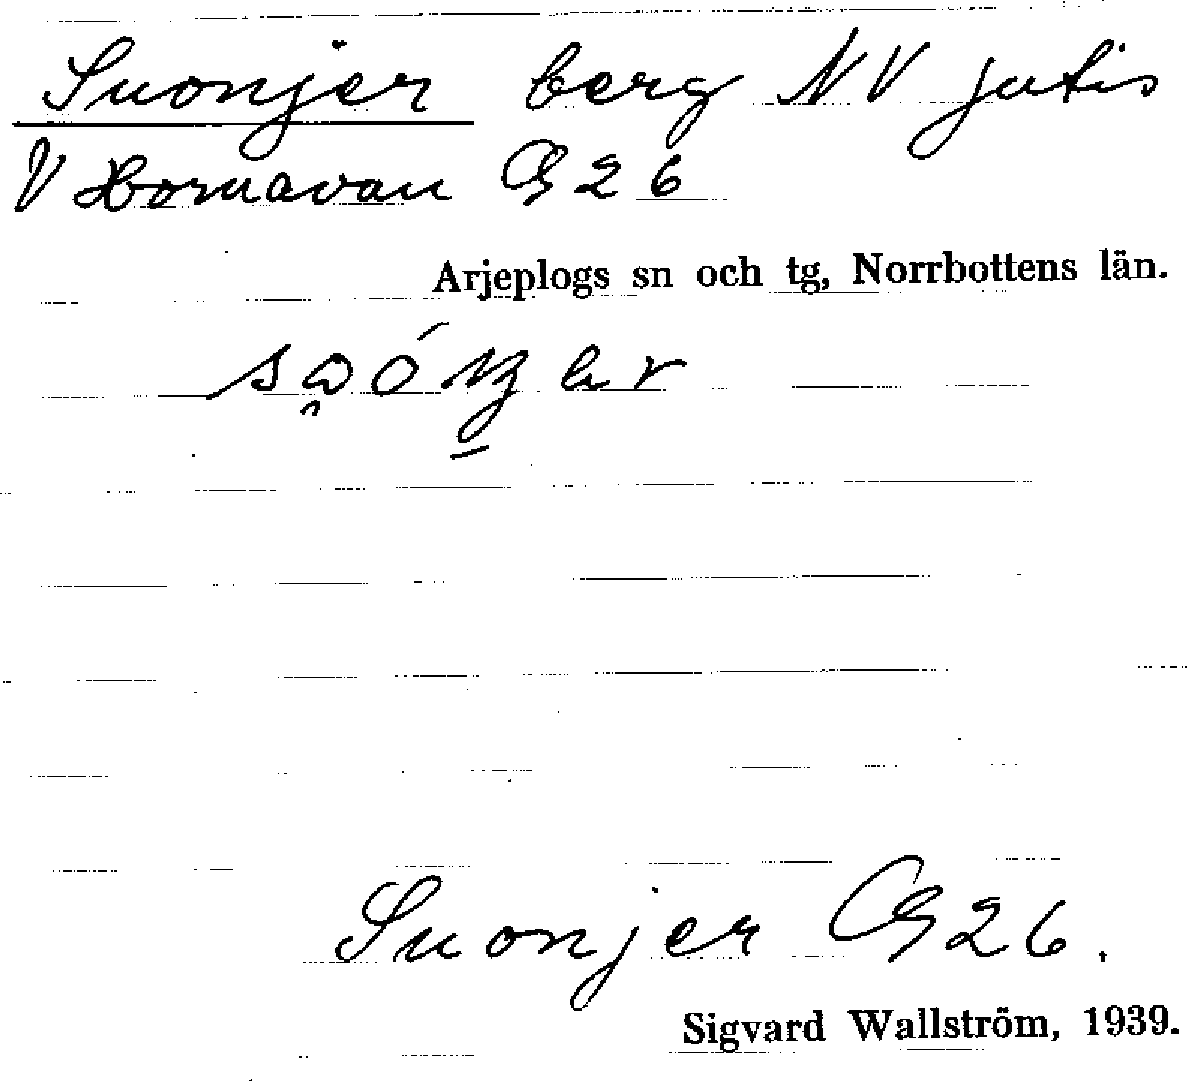 Suonjer berg NV Jutis
V Hornavan GS 26
Arjeplogs sn och tg, Norrbottens län.
Suonjer GS 26.
Sigvard Wallström, 1939.